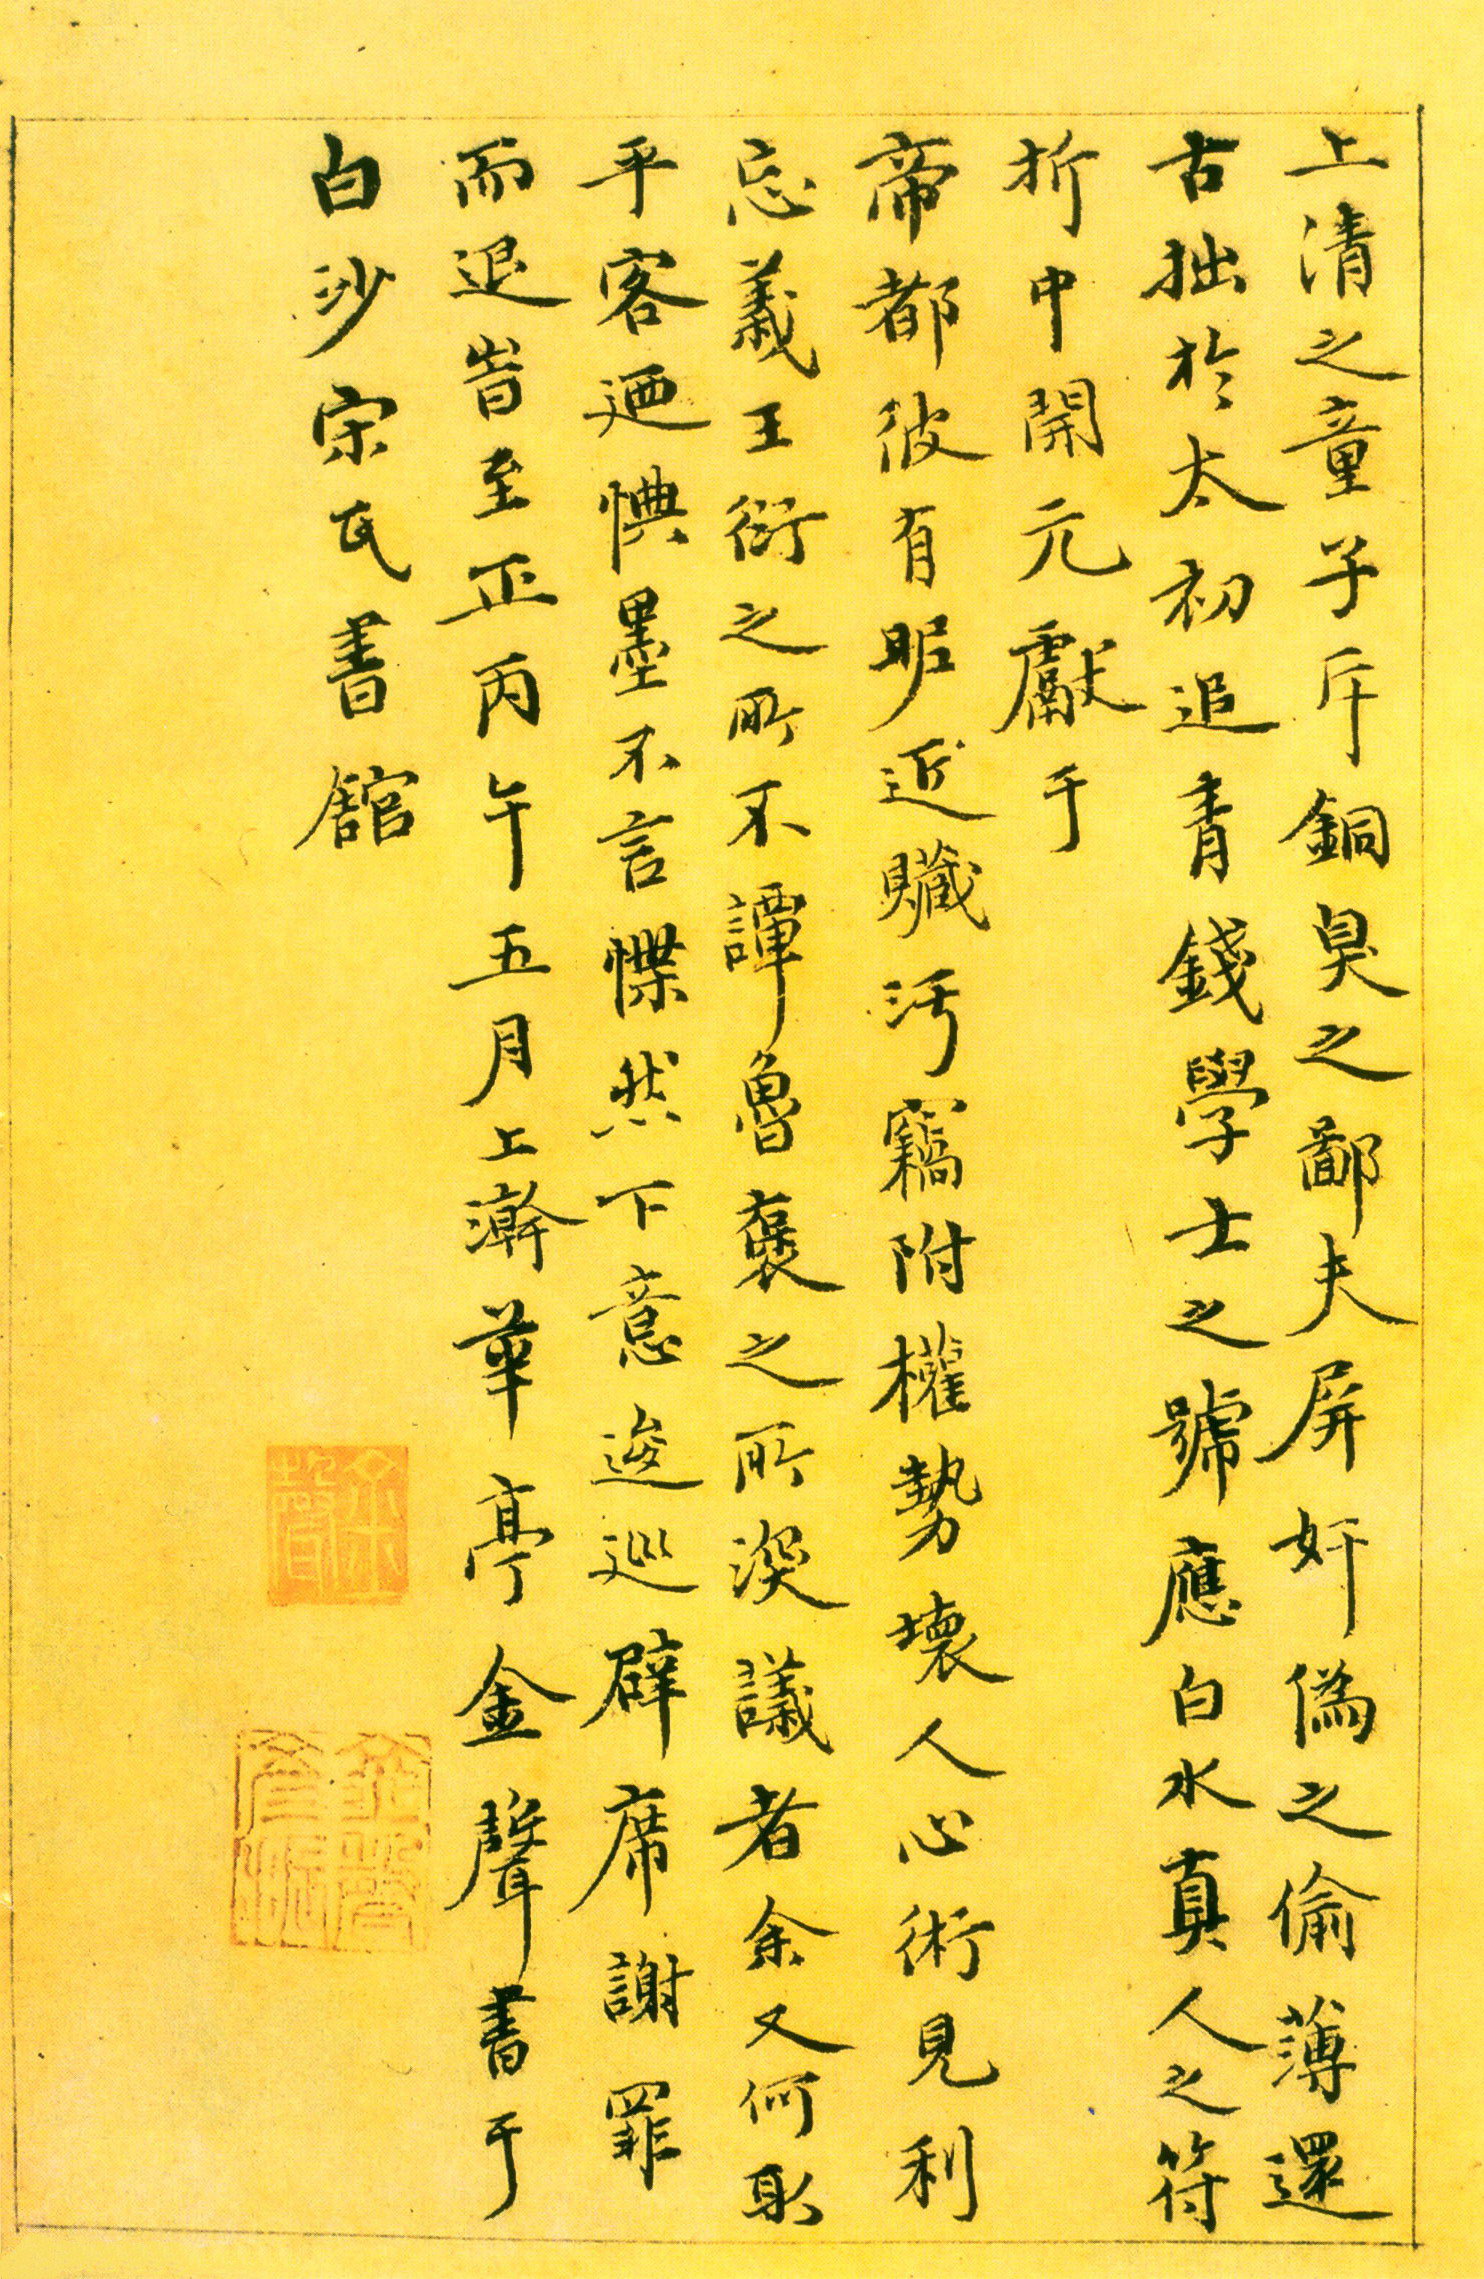 上清之童子斥銅臭之鄙夫屏奸僞之偷薄還
古拙於太初追青錢學士之號應白水真人之符
折中開元獻于
帝都彼有昵近贓汚竊附權勢壞人心術見利
忘義王衍之所不譚魯褒之所深議者余又何取
乎客廼㥏墨不言惵然下意逡巡辟席謝罪
而退旹至正丙午五月上澣華亭金聲書于
白沙宋氏書舘